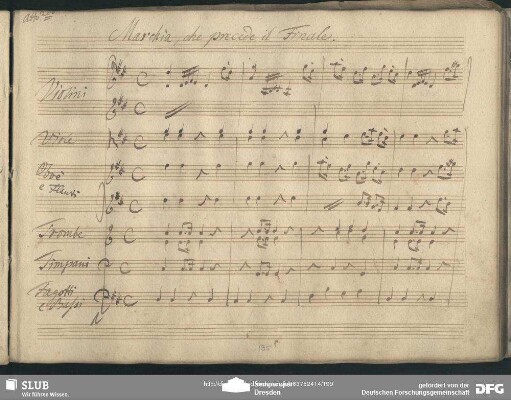 Atto
Marchia che precede il Finale.
Violini
Viole
Oboè
e Flauti
Trombe
Timpani
Fagotti
e Bassi
SLUB
Wir führen Wissen.
Dresden
gefördert von der
Deutschen Forschungsgemeinschaft
DFG